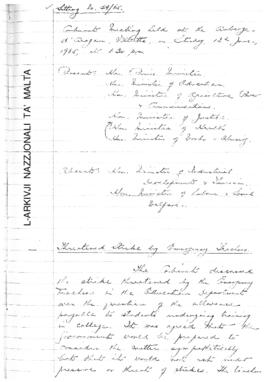 Sitting No. 29/65.
Cabinet Meeting held at the Auberge
d'Aragon, Valletta, on Friday 12th June,
1965, at 1.30 p.m.
Present: Hon. Prime Minister
Hon. Minister of Education
Hon. Minister of Agriculture Power
& Communications
Hon. Minister of Justice
Hon. Minister of Health
Hon. Minister of Works & Housing
Absent: Hon. Minister of Industrial
Development & Tourism
Hon. Minister of Labour & Social
Welfare.
Threatened Strike by Emergency Teachers
The Cabinet discussed
the strike threatened by the Emergency
Teachers in the Education Department
over the question of the allowance
payable to students undergoing training
in college. It was agreed that the
Government would be prepared to
consider the matter sympathetically
but that it would not act under
pressure or threat of strikes. The
L-ARKIVJI NAZZJONALI TA' MALTA